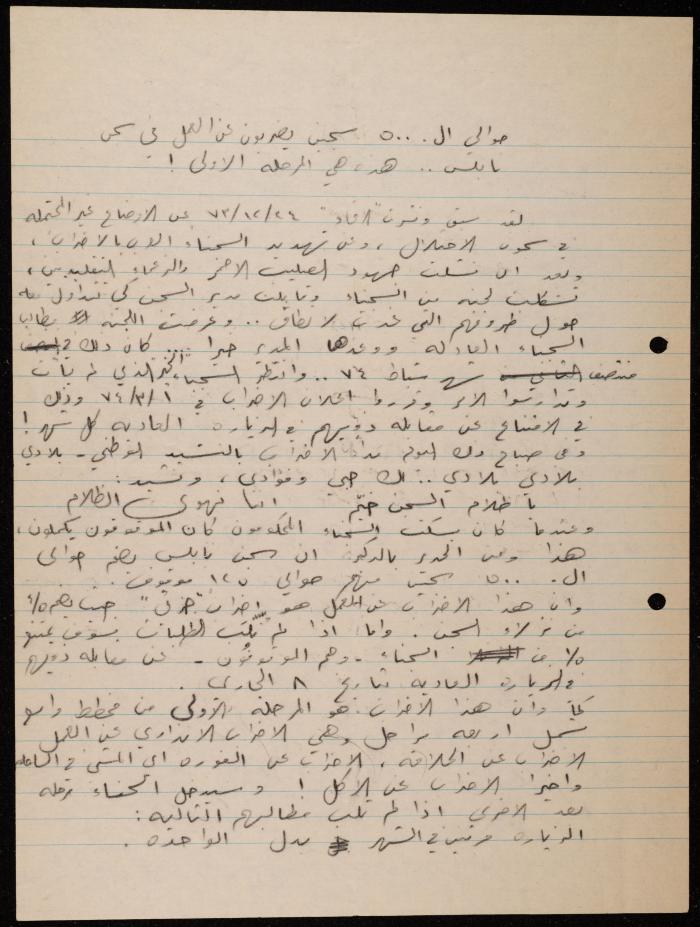 حوالي ال ٥٠٠ سجين يضربون عن العمل في سجن
نابلس .. هذه هي المرحلة الاولى !
لقد سبق ونشرت "الاتحاد" ٧٣/١٢/٢٤ عن الاوضاع غير المحتملة
في سجون الاحتلال ، وعن تهديد السجناء الامنيين بالاضراب ،
وبعد ان فشلت جهود الصليب الاحمر والزعماء التقليديين ،
تشكلت لجنة من السجناء وقابلت مدير السجن كي تتداول معه
حول ظروفهم التي غدت لا تطاق .. وعرضت اللجنة مطالب
السجناء العادلة ووعدها المدير خيرا ... كان ذلك في
منتصف شهر شباط ٧٤ .. وانتظر السجناء الخير الذي لم يأت
وتدارسوا الامر وقرروا اعلان الاضراب في ٧٤/٣/١ وذلك
في الامتناع عن مقابلة ذويهم في الزيارة العادية كل شهر !
وفي صباح ذلك اليوم بدأ الاضراب بالنشيد الوطني - بلادي
بلادي بلادي .. لك حبي وفؤادي ، ونشيد :
يا ظلام السجن خيّم اننا نهوى الظلام
وعندما كان يسكت السجناء المحكومون كان الموقوفون يكملون ،
هذا ومن الجدير بالذكر ان سجن نابلس يضم حوالي
ال ٥٠٠ سجين منهم حوالي ١٢٥ موقوف .
وان هذا الاضراب عن العمل هو اضراب "جزئي" حيث يضم
من نزلاء السجن . واما اذا لم تُلب الطلبات سوف يمتنع
من السجناء - وهم الموقوفون - عن مقابلة ذويهم
في الزيارة العادية بتاريخ ٨ الجاري .
كما وان هذا الاضراب هو المرحلة الاولى من مخطط واسع
يشمل اربعة مراحل وهي الاضراب الانذاري عن العمل
الاضراب عن الحلاقة ، الاضراب عن الفورة اي المشي في الساحة
واخيرا الاضراب عن الاكل ! وسيدخل السجناء مرحلة
بعد الاخرى اذا لم تلب مطالبهم التالية :
الزيارة مرتين في الشهر بدل الواحدة .